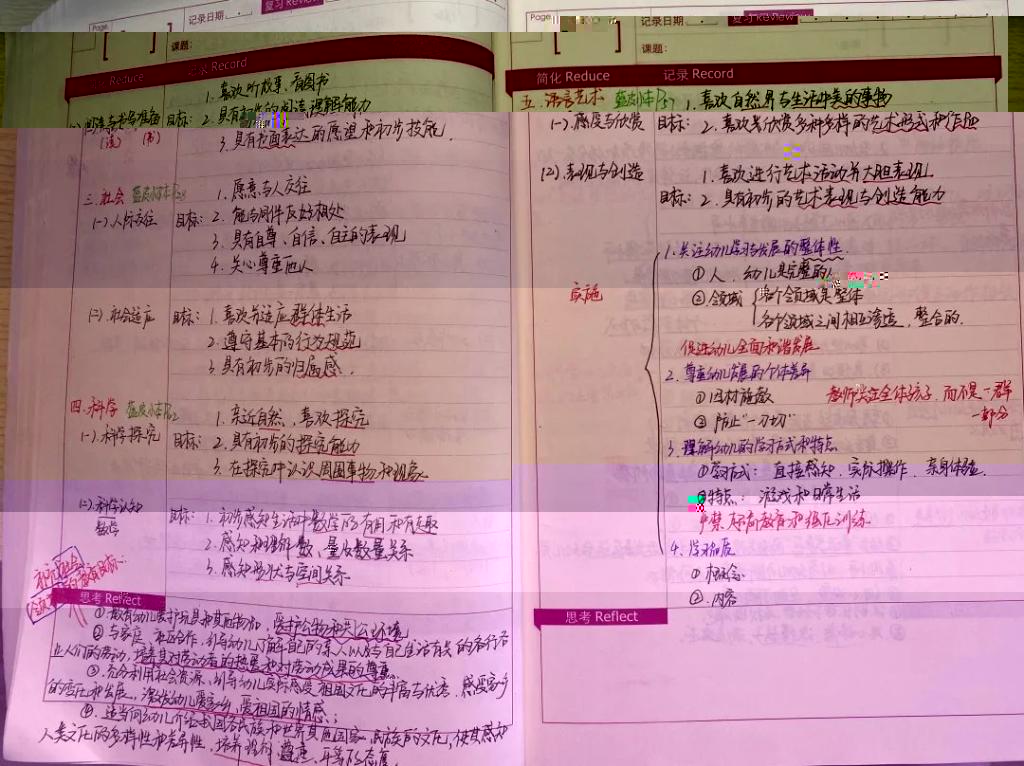 复习 Review
记录日期
Page.
课题:
Reduce 记录 Record
1. 喜欢听故事、看图书
目标: 2. 具有初步的阅读理解能力
3. 具有书面表达的愿望和初步技能
三. 社会 蓝皮小本
(一) 人际交往 目标: 1. 愿意与人交往
2. 能与同伴友好相处
3. 具有自尊、自信、自主的表现
4. 关心尊重他人
(二) 社会适应 目标: 1. 喜欢并适应群体生活
2. 遵守基本的行为规范
3. 具有初步的归属感.
四. 科学 蓝皮小本
(一) 科学探究 目标: 1. 亲近自然、喜欢探究
2. 具有初步的探究能力
3. 在探究中认识周围事物和现象
(二) 科学认知 数学 目标: 1. 初步感知生活中数学的有用和有趣
2. 感知和理解数、量及数量关系
3. 感知形状与空间关系
思考 Reflect
① 教育幼儿爱护玩具和其他物品, 爱护公物和公共环境
② 与家庭、社区合作, 引导幼儿了解自己的亲人以及与自己生活有关的各行各
业人们的劳动, 培养其对劳动者的热爱和对劳动成果的尊重.
③. 充分利用社会资源, 引导幼儿实际感受祖国文化的丰富与优秀, 感受家乡
的变化和发展, 激发幼儿爱家乡, 爱祖国的情感;
④. 适当向幼儿介绍我国各民族和世界其他国家、民族的文化, 使其感知
人类文化的多样性和差异性, 培养理解、尊重、平等的态度.
Page.
记录日期
复习 Review
课题:
简化 Reduce 记录 Record
五. 语言艺术 蓝皮小本P57
(一). 感受与欣赏 目标: 1. 喜欢自然界与生活中美的事物
2. 喜欢并欣赏多种多样的艺术形式和作品
(2) 表现与创造 目标: 1. 喜欢进行艺术活动并大胆表现.
2. 具有初步的艺术表现与创造能力
实施
1. 关注幼儿学习与发展的整体性
① 人. 幼儿是完整的人
② 领域 各个领域是整体
各个领域之间相互渗透, 整合的.
促进幼儿全面和谐发展
2. 尊重幼儿发展的个体差异
① 因材施教
教师关注全体孩子, 而不是一群
一部分
② 防止“一刀切”
3. 理解幼儿的学习方式和特点
① 学习方式: 直接感知、实际操作、亲身体验.
② 特点: 游戏和日常生活
严禁拔苗助长教育和强化训练
4. 学习品质
① 概念
②. 内容
思考 Reflect